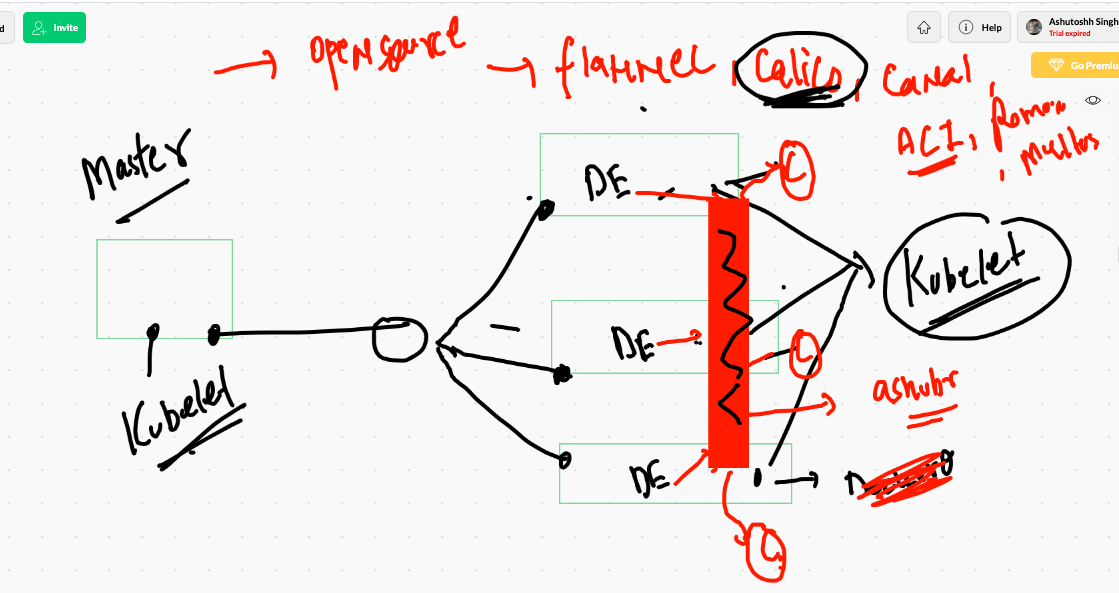 d
Invite
Help
Ashutoshh Singh
Trial expired
Go Premiu
→ opensource → flannel, Calico, Canal,
ACI, Romana
, Multus
Master
DE
C
Kubelet
DE
C
ashubr
Kubelet
DE
C